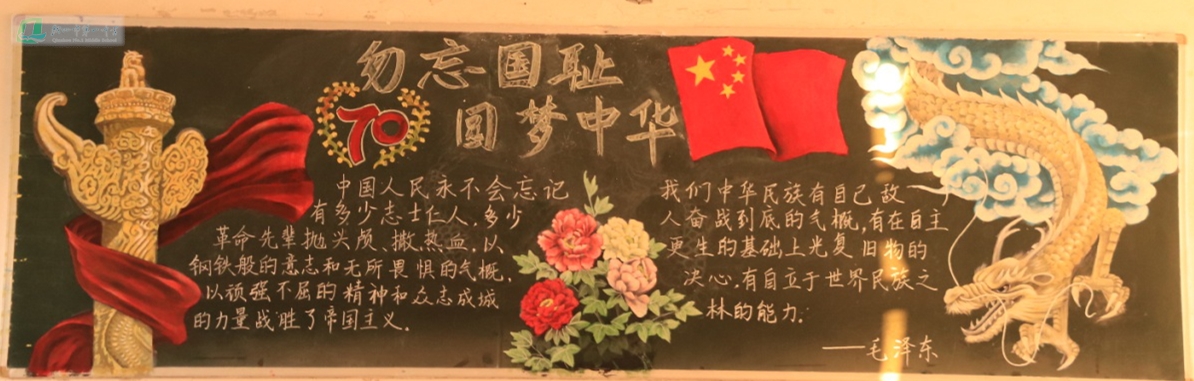 勿忘国耻
圆梦中华
70
中国人民永不会忘记
有多少志士仁人,多少
革命先辈抛头颅、撒热血.以
钢铁般的意志和无所畏惧的气概,
以顽强不屈的精神和众志成城
的力量战胜了帝国主义.
我们中华民族有自己敌
人奋战到底的气概,有在自主
更生的基础上光复旧物的
决心.有自立于世界民族之
林的能力.
——毛泽东